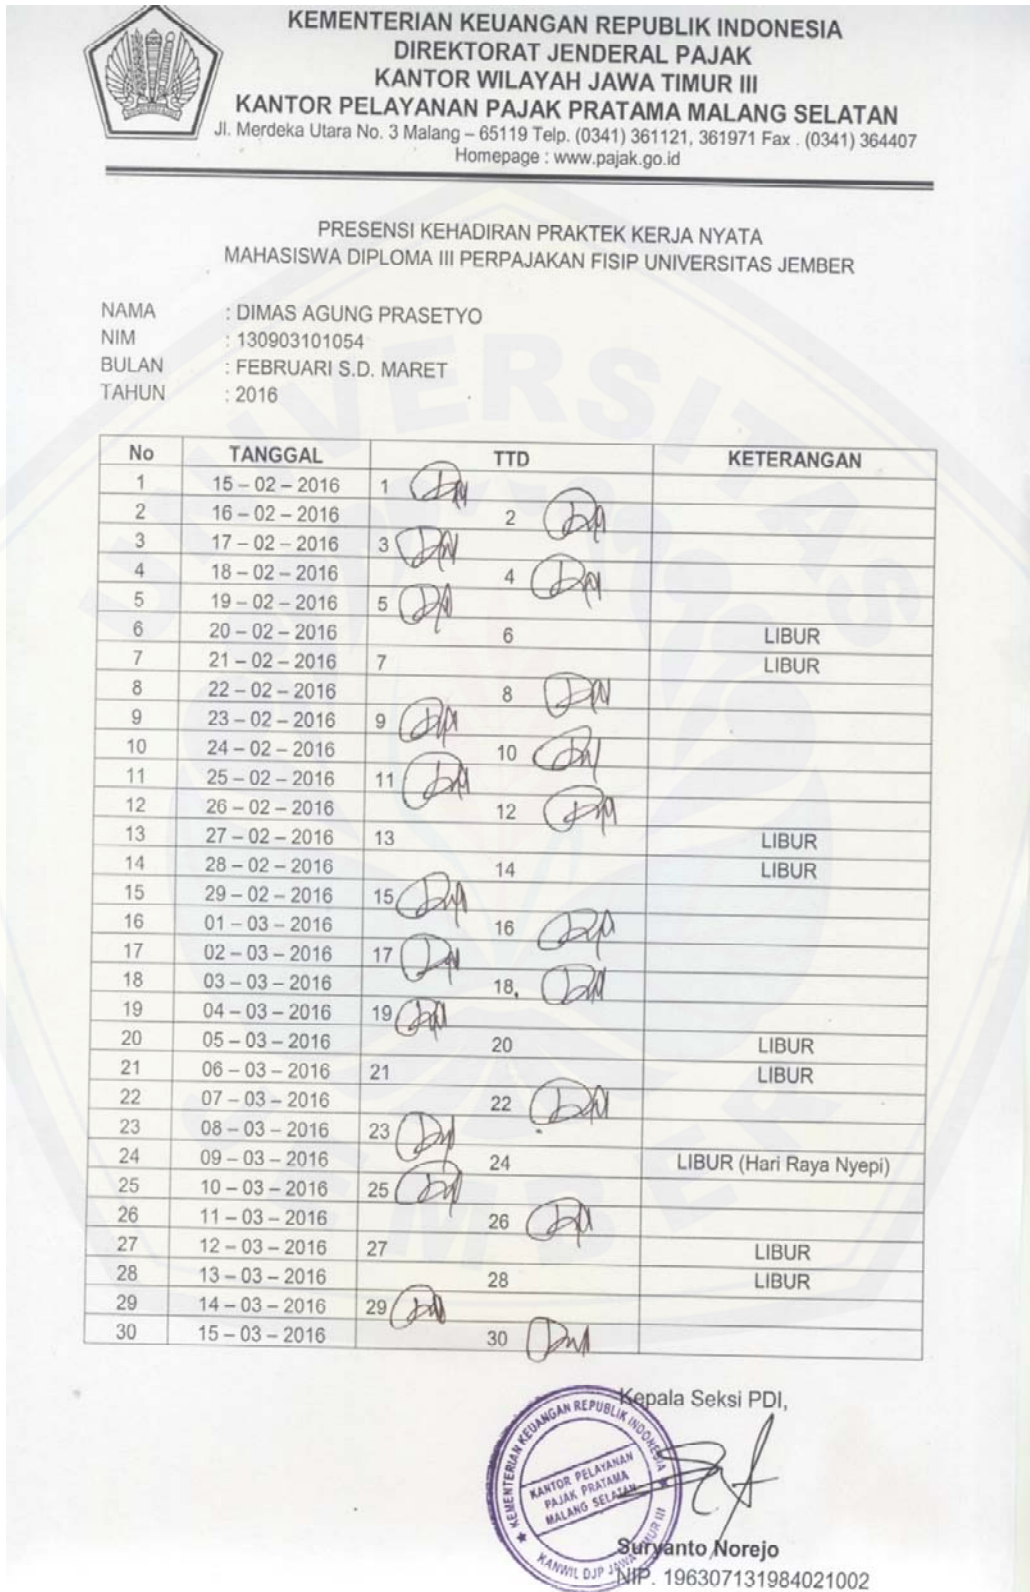 KEMENTERIAN KEUANGAN REPUBLIK INDONESIA
DIREKTORAT JENDERAL PAJAK
KANTOR WILAYAH JAWA TIMUR III
KANTOR PELAYANAN PAJAK PRATAMA MALANG SELATAN
Jl. Merdeka Utara No. 3 Malang – 65119 Telp. (0341) 361121, 361971 Fax . (0341) 364407
Homepage : www.pajak.go.id
PRESENSI KEHADIRAN PRAKTEK KERJA NYATA
MAHASISWA DIPLOMA III PERPAJAKAN FISIP UNIVERSITAS JEMBER
NAMA : DIMAS AGUNG PRASETYO
NIM : 130903101054
BULAN : FEBRUARI S.D. MARET
TAHUN : 2016
No TANGGAL TTD KETERANGAN
1 15 – 02 – 2016 1
2 16 – 02 – 2016 2
3 17 – 02 – 2016 3
4 18 – 02 – 2016 4
5 19 – 02 – 2016 5
6 20 – 02 – 2016 6 LIBUR
7 21 – 02 – 2016 7 LIBUR
8 22 – 02 – 2016 8
9 23 – 02 – 2016 9
10 24 – 02 – 2016 10
11 25 – 02 – 2016 11
12 26 – 02 – 2016 12
13 27 – 02 – 2016 13 LIBUR
14 28 – 02 – 2016 14 LIBUR
15 29 – 02 – 2016 15
16 01 – 03 – 2016 16
17 02 – 03 – 2016 17
18 03 – 03 – 2016 18.
19 04 – 03 – 2016 19
20 05 – 03 – 2016 20 LIBUR
21 06 – 03 – 2016 21 LIBUR
22 07 – 03 – 2016 22
23 08 – 03 – 2016 23
24 09 – 03 – 2016 24 LIBUR (Hari Raya Nyepi)
25 10 – 03 – 2016 25
26 11 – 03 – 2016 26
27 12 – 03 – 2016 27 LIBUR
28 13 – 03 – 2016 28 LIBUR
29 14 – 03 – 2016 29
30 15 – 03 – 2016 30
Kepala Seksi PDI,
KEMENTERIAN KEUANGAN REPUBLIK INDONESIA
KANTOR PELAYANAN
PAJAK PRATAMA
MALANG SELATAN
KANWIL DJP JAWA TIMUR III
Suryanto Norejo
NIP. 196307131984021002
UNIVERSITAS JEMBER